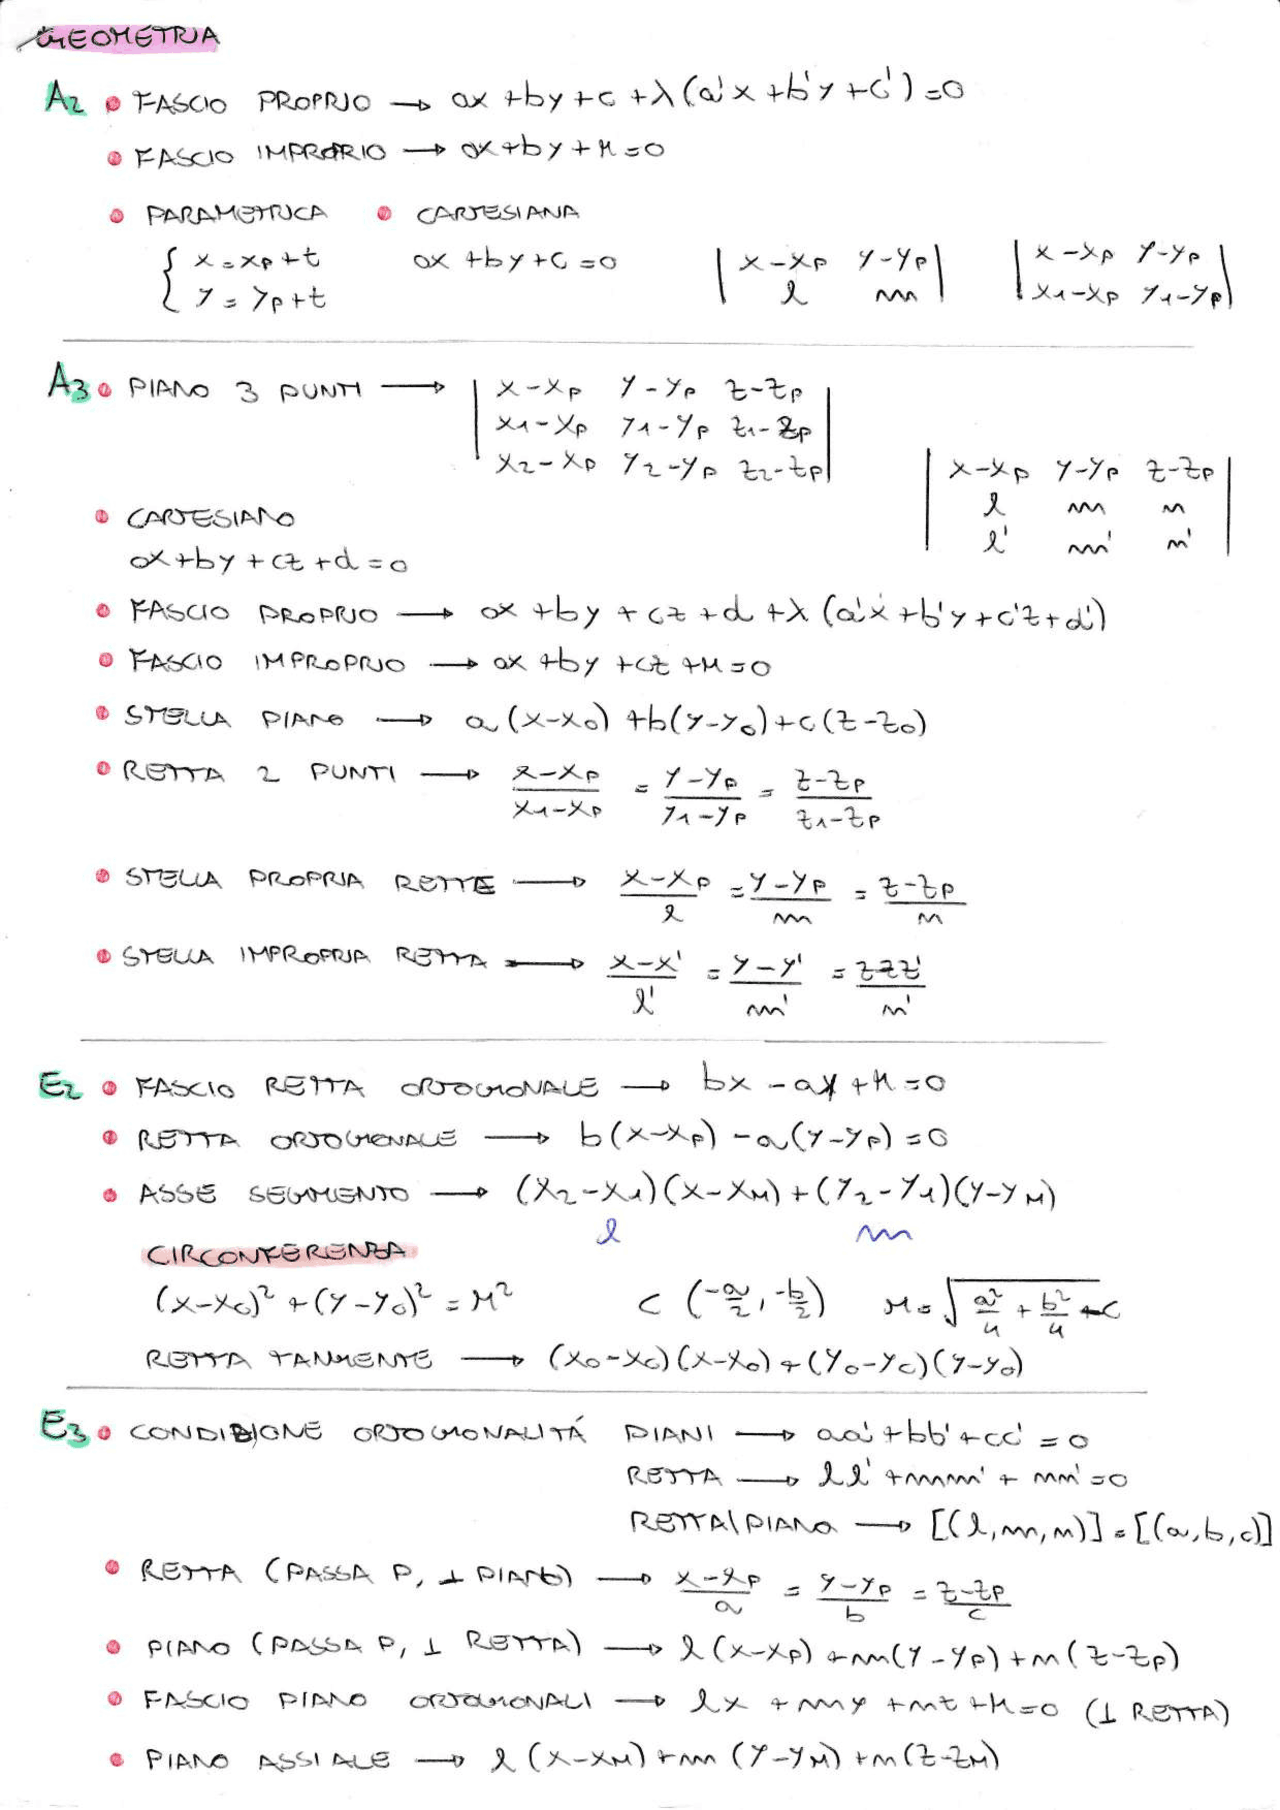 GEOMETRIA
A2 • FASCIO PROPRIO → ax + by + c + λ(a'x + b'y + c') = 0
• FASCIO IMPROPRIO → ax + by + k = 0
• PARAMETRICA • CARTESIANA
{ x = xp + t ax + by + c = 0 | x-xp y-yp | | x-xp y-yp |
{ y = yp + t | l m | | x1-xp y1-yp |
A3 • PIANO 3 PUNTI → | x-xp y-yp z-zp |
| x1-xp y1-yp z1-zp |
| x2-xp y2-yp z2-zp |
| x-xp y-yp z-zp |
| l m n |
| l' m' n' |
• CARTESIANO
ax + by + cz + d = 0
• FASCIO PROPRIO → ax + by + cz + d + λ(a'x + b'y + c'z + d')
• FASCIO IMPROPRIO → ax + by + cz + k = 0
• STELLA PIANO → a(x-x0) + b(y-y0) + c(z-z0)
• RETTA 2 PUNTI → (x-xp)/(x1-xp) = (y-yp)/(y1-yp) = (z-zp)/(z1-zp)
• STELLA PROPRIA RETTE → (x-xp)/l = (y-yp)/m = (z-zp)/n
• STELLA IMPROPRIA RETTA → (x-x')/l' = (y-y')/m' = (z-z')/n'
E2 • FASCIO RETTA ORTOGONALE → bx - ay + k = 0
• RETTA ORTOGONALE → b(x-xp) - a(y-yp) = 0
• ASSE SEGMENTO → (x2-x1)(x-xM) + (y2-y1)(y-yM)
l m
CIRCONFERENZA
(x-xc)² + (y-yc)² = r² C (-a/2, -b/2) r = √(a²/4 + b²/4 - c)
RETTA TANGENTE → (x0-xc)(x-x0) + (y0-yc)(y-y0)
E3 • CONDIZIONE ORTOGONALITÁ PIANI → aa' + bb' + cc' = 0
RETTA → ll' + mm' + nn' = 0
RETTA\PIANO → [(l, m, n)] = [(a, b, c)]
• RETTA (PASSA P, ⊥ PIANO) → (x-xp)/a = (y-yp)/b = (z-zp)/c
• PIANO (PASSA P, ⊥ RETTA) → l(x-xp) + m(y-yp) + n(z-zp)
• FASCIO PIANO ORTOGONALI → lx + my + nz + k = 0 (⊥ RETTA)
• PIANO ASSIALE → l(x-xM) + m(y-yM) + n(z-zM)